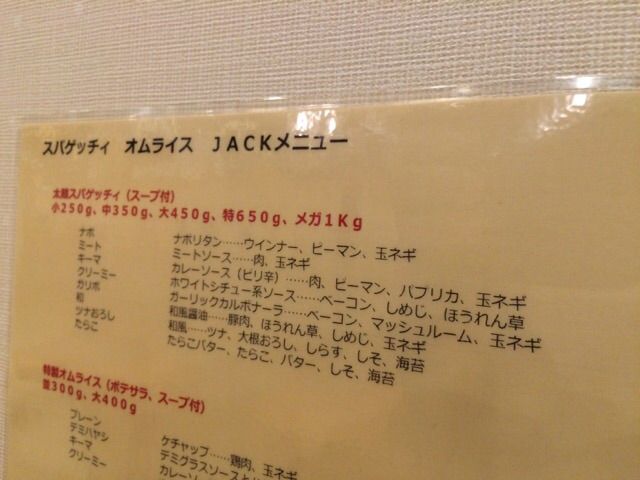 スパゲッチィ　オムライス　ＪＡＣＫメニュー
太麺スパゲッチィ（スープ付）
小250g、中350g、大450g、特650g、メガ1Kg
ナポ　ナポリタン……ウインナー、ピーマン、玉ネギ
ミート　ミートソース……肉、玉ネギ
キーマ　カレーソース（ピリ辛）……肉、ピーマン、パプリカ、玉ネギ
クリーミー　ホワイトシチュー系ソース……ベーコン、しめじ、ほうれん草
ガリポ　ガーリックカルボナーラ……ベーコン、マッシュルーム、玉ネギ
和　和風醤油……豚肉、ほうれん草、しめじ、玉ネギ
ツナおろし　和風……ツナ、大根おろし、しらす、しそ、海苔
たらこ　たらこバター、たらこ、バター、しそ、海苔
特製オムライス（ポテサラ、スープ付）
並300g、大400g
プレーン　ケチャップ……鶏肉、玉ネギ
デミハヤシ　デミグラスソース
キーマ　カレーソー
クリーミー